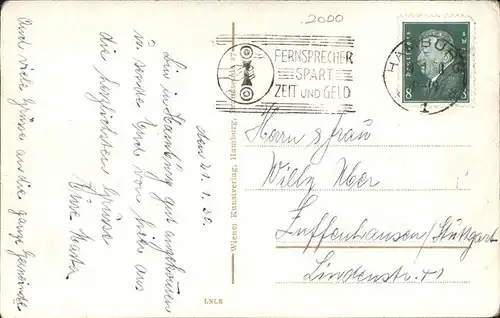 2000
FERNSPRECHER
SPART
ZEIT UND GELD
HAMBURG
1
8 8
den 21.1.30.
Bin in Hamburg gut angekommen
u. sende Euch von hier aus
die herzlichsten Grüsse
Eure
Und viele Grüsse an die ganze Gemeinde
Wiener Kunstverlag, Hamburg,
LNLK
Herrn u. Frau
Willy
Zuffenhausen/Stuttgart
Lindenstr. 41